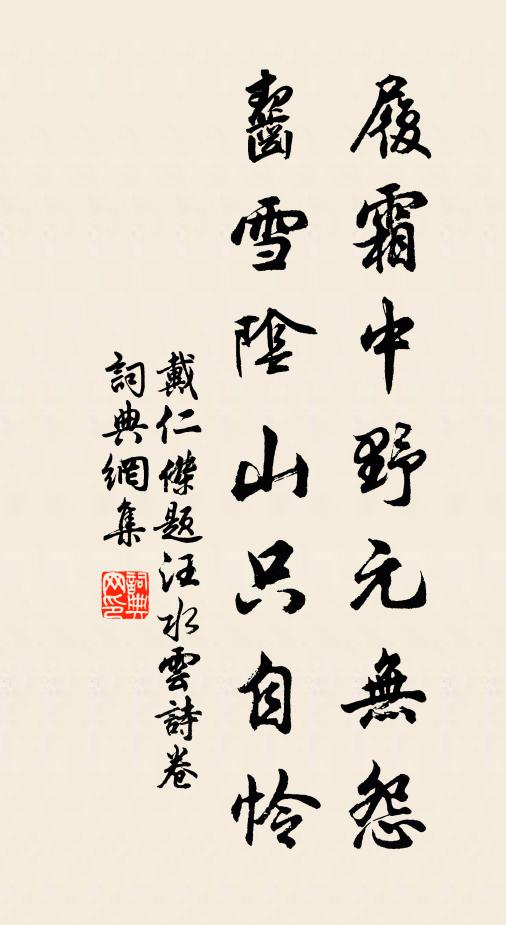 履霜中野元無怨
齧雪陰山只自怜
戴仁傑題汪水雲詩卷
詞典網集
詞典
网印